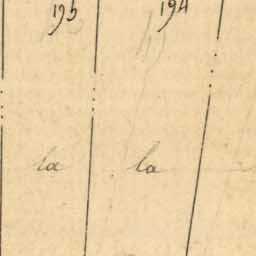 195 194
la la